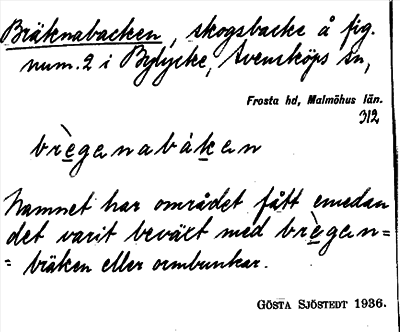 Bräknabacken, skogsbacke å fig.
num. 2 i Bylycke, Svensköps sn,
Frosta hd, Malmöhus län.
312
brèganabákan
Namnet har området fått emedan
det varit beväxt med brègan=
= bräken eller ormbunkar.
GÖSTA SJÖSTEDT 1936.